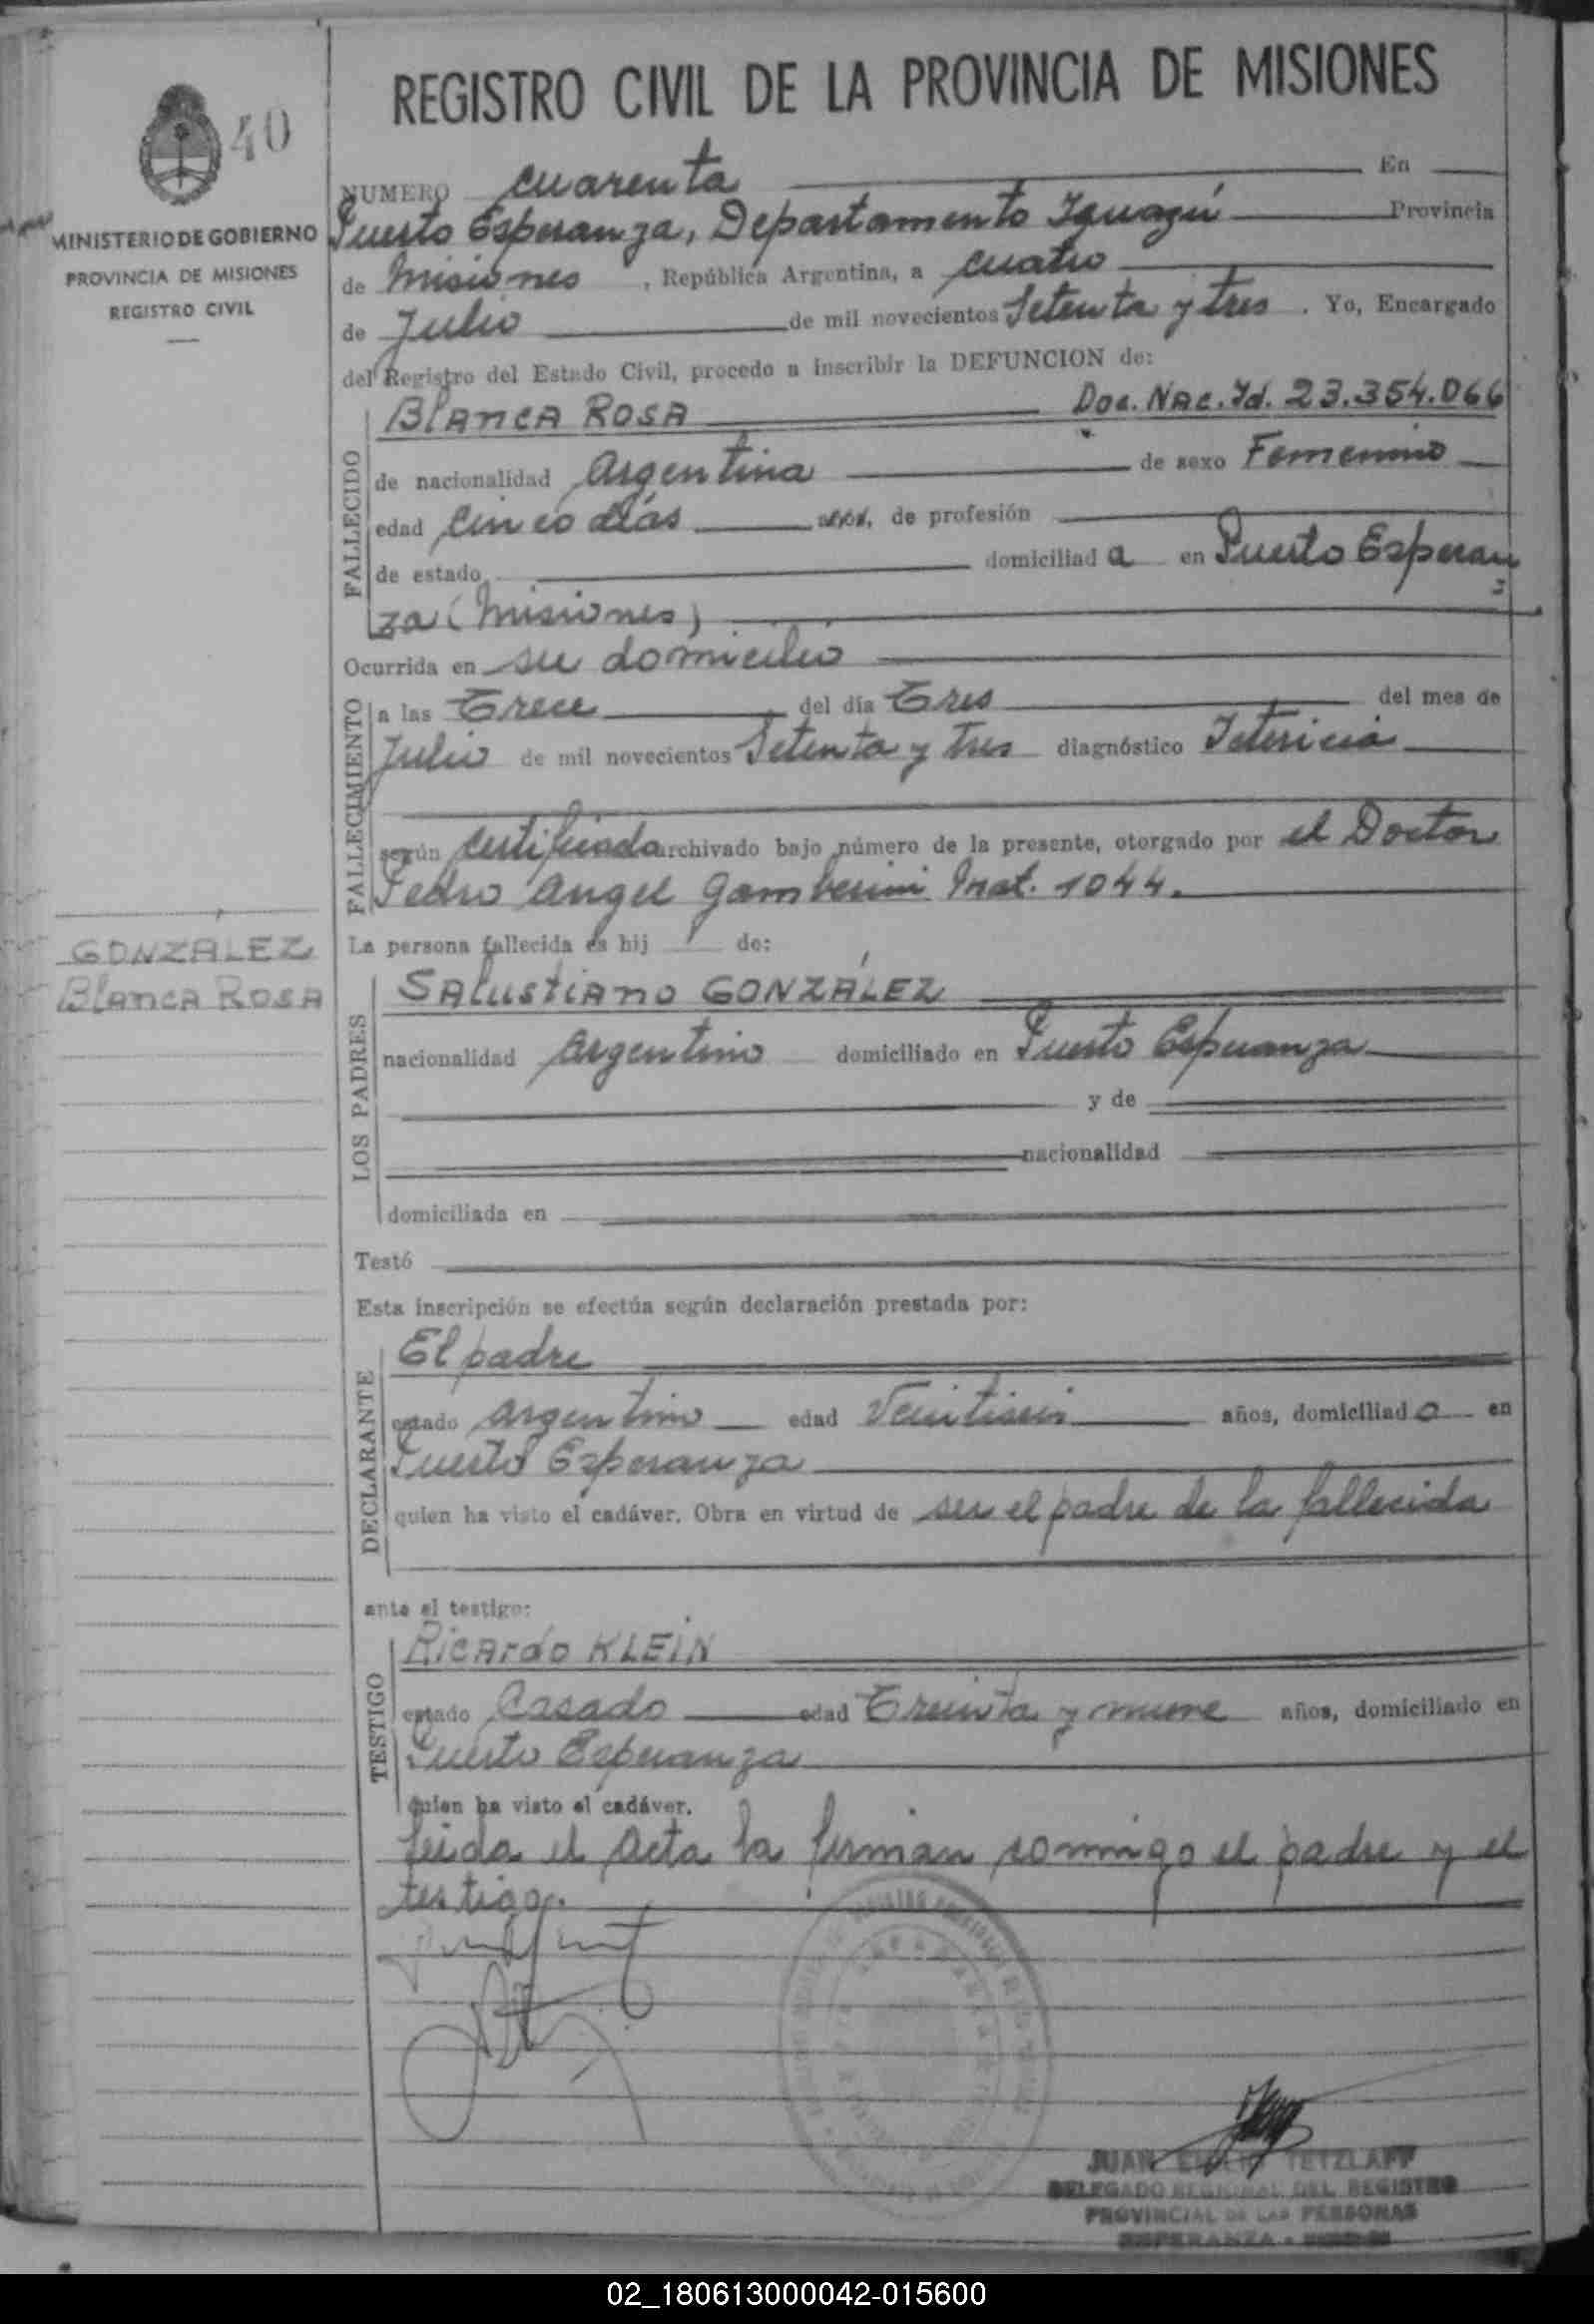 REGISTRO CIVIL DE LA PROVINCIA DE MISIONES
40
MINISTERIO DE GOBIERNO
PROVINCIA DE MISIONES
REGISTRO CIVIL
NUMERO cuarenta En
Puerto Esperanza, Departamento Iguazú Provincia
de Misiones , República Argentina, a cuatro
de Julio de mil novecientos Setenta y tres . Yo, Encargado
del Registro del Estado Civil, procedo a inscribir la DEFUNCION de:
FALLECIDO
Blanca Rosa Doc. Nac. Id. 23.354.066
de nacionalidad Argentina de sexo Femenino
edad Cinco días años, de profesión
de estado domiciliad a en Puerto Esperan
za (Misiones)
Ocurrida en su domicilio
FALLECIMIENTO
a las Trece del día Tres del mes de
Julio de mil novecientos Setenta y Tres diagnóstico Ictericia
según certificado archivado bajo número de la presente, otorgado por el Doctor
Pedro Angel Gamberini Mat. 1044.
GONZALEZ
Blanca Rosa
La persona fallecida es hij de:
LOS PADRES
Salustiano GONZÁLEZ
nacionalidad Argentino domiciliado en Puerto Esperanza
y de
nacionalidad
domiciliada en
Testó
Esta inscripción se efectúa según declaración prestada por:
DECLARANTE
El padre
estado argentino edad Veintiseis años, domiciliad o en
Puerto Esperanza
quien ha visto el cadáver. Obra en virtud de ser el padre de la fallecida
ante el testigo:
TESTIGO
Ricardo KLEIN
estado Casado edad Treinta y nueve años, domiciliado en
Puerto Esperanza
quien ha visto el cadáver.
Leida el Acta la firman conmigo el padre y el
testigo.
JUAN TETZLAFF
DELEGADO REGIONAL DEL REGISTRO
PROVINCIAL DE LAS PERSONAS
ESPERANZA -
02_180613000042-015600